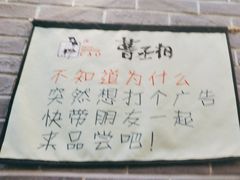 曹丞相
不知道为什么
突然想打个广告
快带朋友一起
来品尝吧!